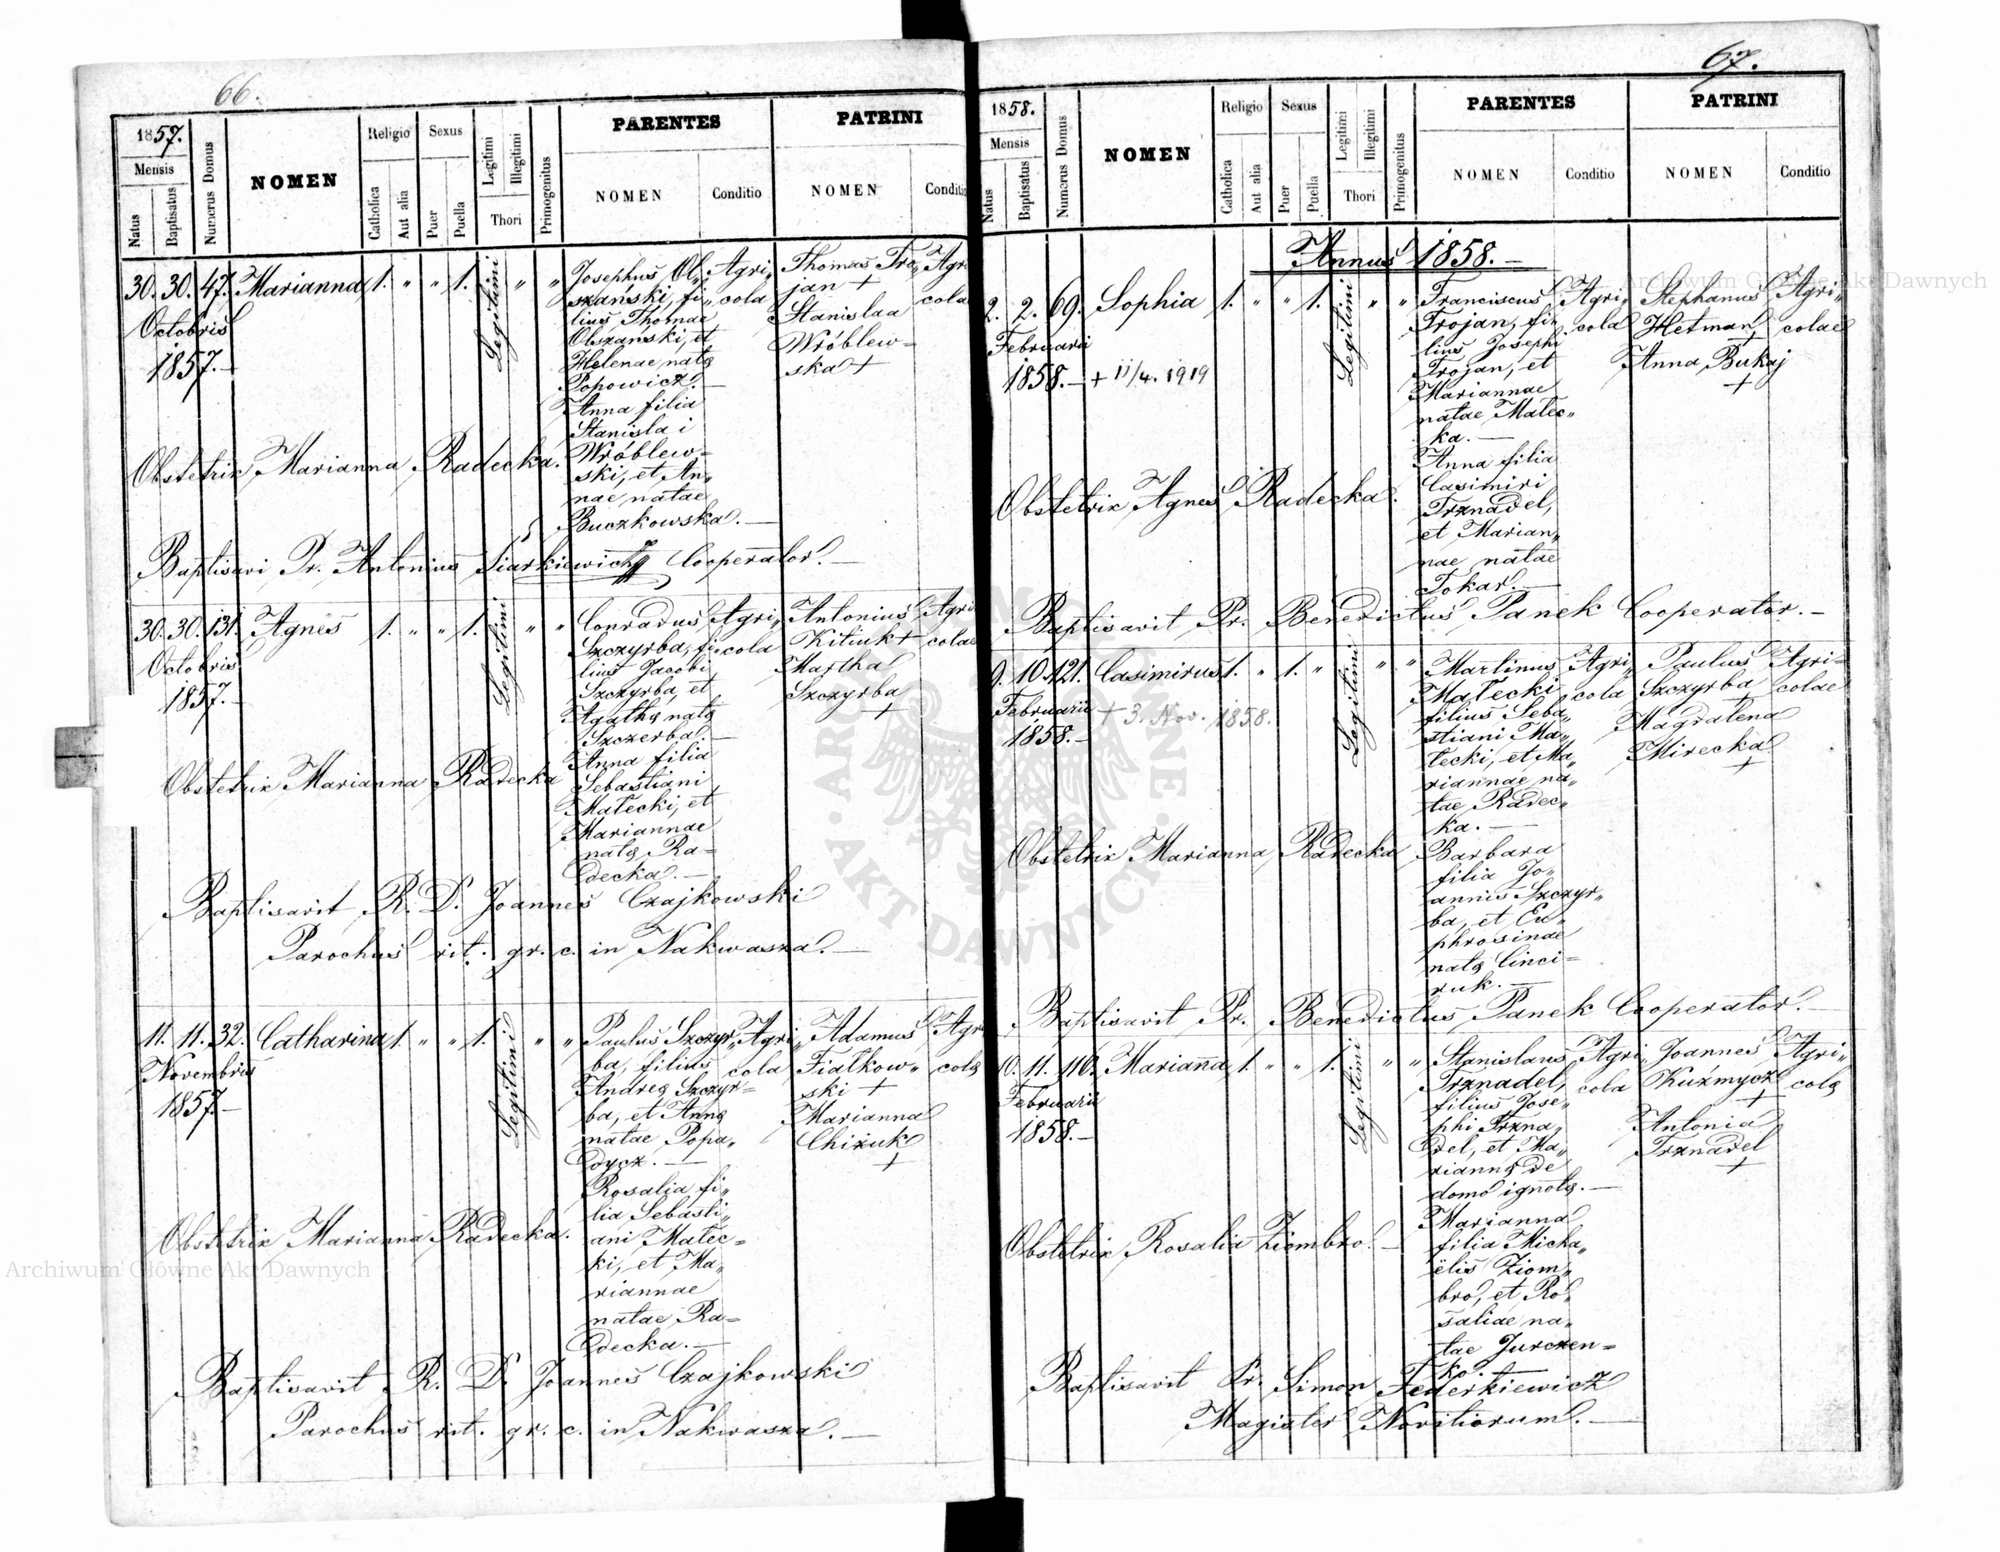 66.
1857.
Mensis
Natus
Baptisatus
Numerus Domus
NOMEN
Religio
Catholica
Aut alia
Sexus
Puer
Puella
Legitimi
Illegitimi
Thori
Primogenitus
PARENTES
NOMEN
Conditio
PATRINI
NOMEN
Conditio
30. 30. 47. Marianna 1. " " 1. Legitimi " "
Octobris
1857.—
Josephus Ol„
szański, fi„
lius Thomae
Olszański, et
Helenae natę
Popowicz.—
Anna filia
Stanislai
Wróblew=
ski, et An„
nae natae
Buczkowska.—
Agri„
cola
Thomas Tro„
jan +
Stanislaa
Wróblew=
ska +
Agri
colae
Obstetrix Marianna Radecka.
Baptisavi Pr. Antonius Siarkiewicz Cooperator.—
30. 30. 131. Agnes 1. " " 1. Legitimi " "
Octobris
1857.—
Conradus
Szczyrba, fi„
lius Jacobi
Szczyrba, et
Agathę natę
Szczerba.—
Anna filia
Sebastiani
Małecki, et
Mariannae
natę Ra=
decka.—
Agri„
cola
Antonius
Kitiuk +
Martha
Szczyrba
+
Agri
colae
Obstetrix Marianna Radecka
Baptisavit R. D. Joannes Czajkowski
Parochus rit. gr. c. in Nakwasza.—
11. 11. 32. Catharina 1. " " 1. Legitimi " "
Novembris
1857.—
Paulus Szczyr„
ba, filius
Andreę Szczyr=
ba, et Annę
natae Popa„
dycz.—
Rosalia fi„
lia Sebasti„
ani Małec=
ki, et Ma„
riannae
natae Ra=
decka.—
Agri„
cola
Adamus
Fiałkow„
ski +
Marianna
Chiżuk
+
Agri
colę
Obstetrix Marianna Radecka.
Baptisavit R. D. Joannes Czajkowski
Parochus rit. gr. c. in Nakwasza.—
67.
1858.
Mensis
Natus
Baptisatus
Numerus Domus
NOMEN
Religio
Catholica
Aut alia
Sexus
Puer
Puella
Legitimi
Illegitimi
Thori
Primogenitus
PARENTES
NOMEN
Conditio
PATRINI
NOMEN
Conditio
Annus 1858.—
2. 2. 69. Sophia 1. " " 1. Legitimi " "
Februarii
1858.— + 11/4. 1919
Franciscus
Trojan, fi„
lius Josephi
Trojan, et
Mariannae
natae Małec„
ka.—
Anna filia
Casimiri
Trznadel,
et Marian„
nae natae
Tokar.—
Agri„
cola
Stephanus
Hetman +
Anna Bukaj
+
Agri„
colae
Obstetrix Agnes Radecka.
Baptisavit Pr. Benedictus Panek Cooperator.—
9. 10. 121. Casimirus 1. " 1. " Legitimi " "
Februarii + 3. Nov. 1858.
1858.—
Martinus
Małecki
filius Seba„
stiani Ma„
łecki, et Ma„
riannae na„
tae Radec„
ka.—
Barbara
filia Jo„
annis Szczyr„
ba, et Eu„
phrosinae
natę Cinci=
ruk.—
Agri„
cola
Paulus
Szczyrba
Magdalena
Mirecka
+
Agri=
colae
Obstetrix Marianna Radecka
Baptisavit Pr. Benedictus Panek Cooperator.—
10. 11. 110. Marianna 1. " " 1. Legitimi " "
Februarii
1858.—
Stanislaus
Trznadel,
filius Jose„
phi Trzna„
del, et Ma„
riannę de
domo ignotę.—
Marianna
filia Micha„
ëlis Ziom„
bro, et Ro„
saliae na„
tae Jurczen=
ko.—
Agri„
cola
Joannes
Kuźmycz
+
Antonia
Trznadel
+
Agri„
colę
Obstetrix Rosalia Ziombro.—
Baptisavit Pr. Simon Federkiewicz
Magister Novitiorum.—
Archiwum Główne Akt Dawnych
Archiwum Główne Akt Dawnych
ARCHIWUM GŁÓWNE · AKT DAWNYCH ·